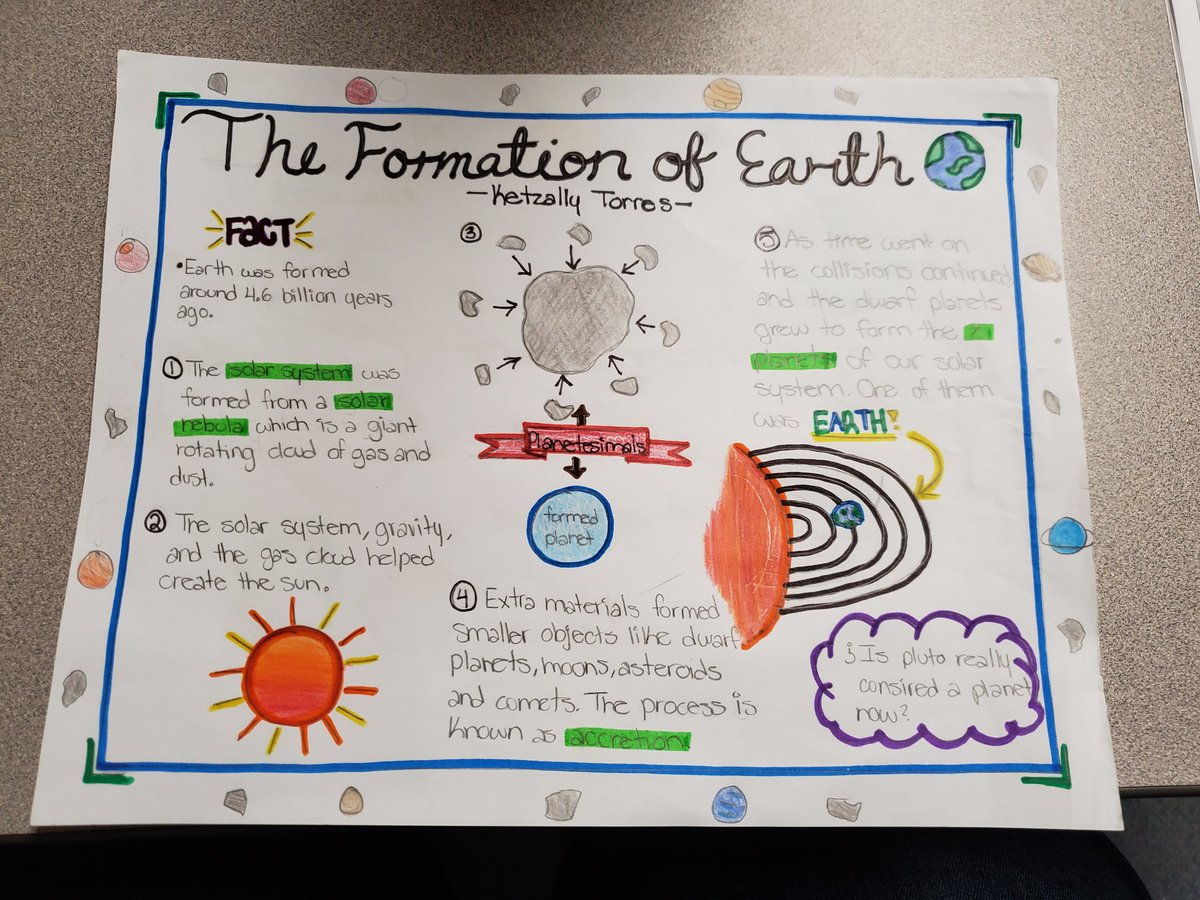 The Formation of Earth
-Ketzally Torres-
FACT
•Earth was formed
around 4.6 billion years
ago.
① The solar system was
formed from a solar
nebula which is a giant
rotating cloud of gas and
dust.
② The solar system, gravity,
and the gas cloud helped
create the sun.
③
Planetesimals
formed
planet
④ Extra materials formed
smaller objects like dwarf
planets, moons, asteroids
and comets. The process is
known as accretion.
⑤ As time went on
the collisions continued
and the dwarf planets
grew to form the
planets of our solar
system. One of them
was EARTH!
¿Is pluto really
consired a planet
now?